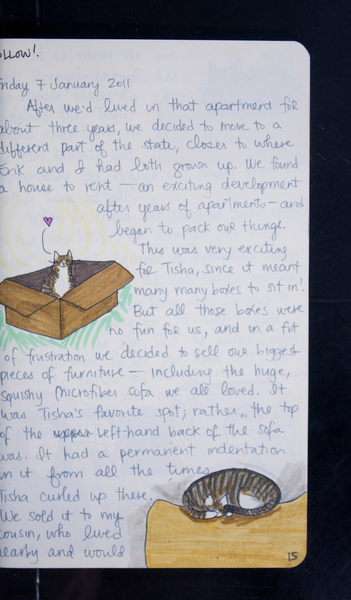 ollow!
riday 7 January 2011
After we'd lived in that apartment for
about three years, we decided to move to a
different part of the state, closer to where
Erik and I had both grown up. We found
a house to rent — an exciting development
after years of apartments — and
began to pack our things.
This was very exciting
for Tisha, since it meant
many many boxes to sit in!
But all those boxes were
no fun for us, and in a fit
of frustration we decided to sell our biggest
pieces of furniture — including the huge,
squishy microfiber sofa we all loved. It
was Tisha's favorite spot; rather, the top
of the upper left-hand back of the sofa
was. It had a permanent indentation
in it from all the times
Tisha curled up there.
We sold it to my
cousin, who lived
nearby and would
15